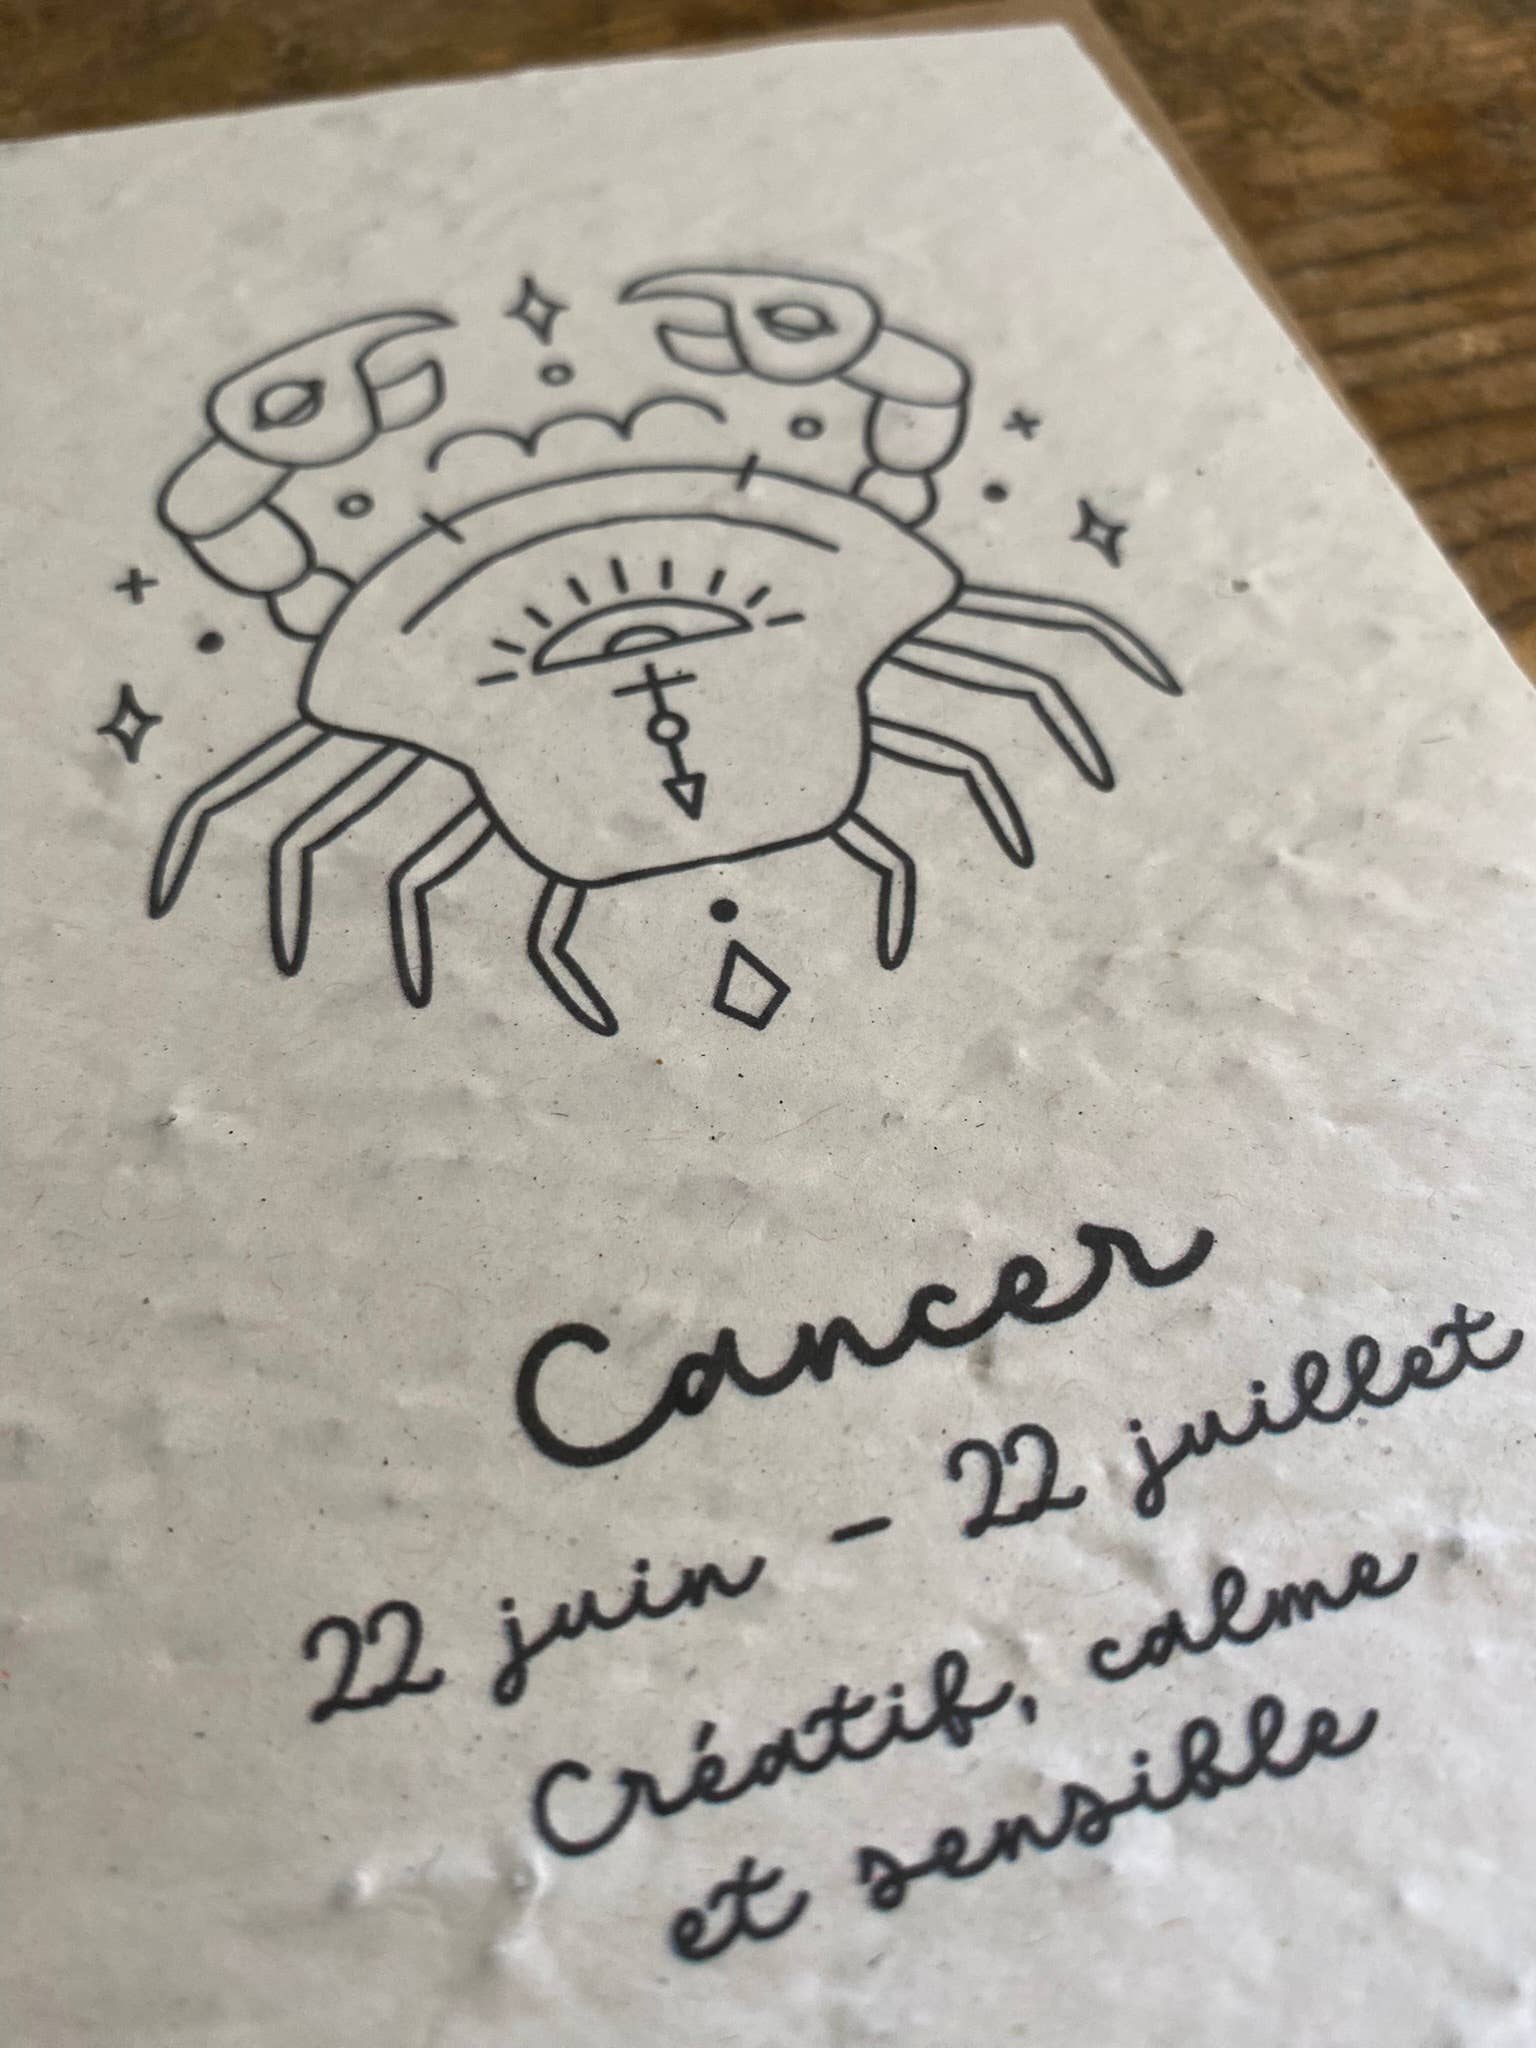 Cancer
22 juin - 22 juillet
Créatif, calme
et sensible